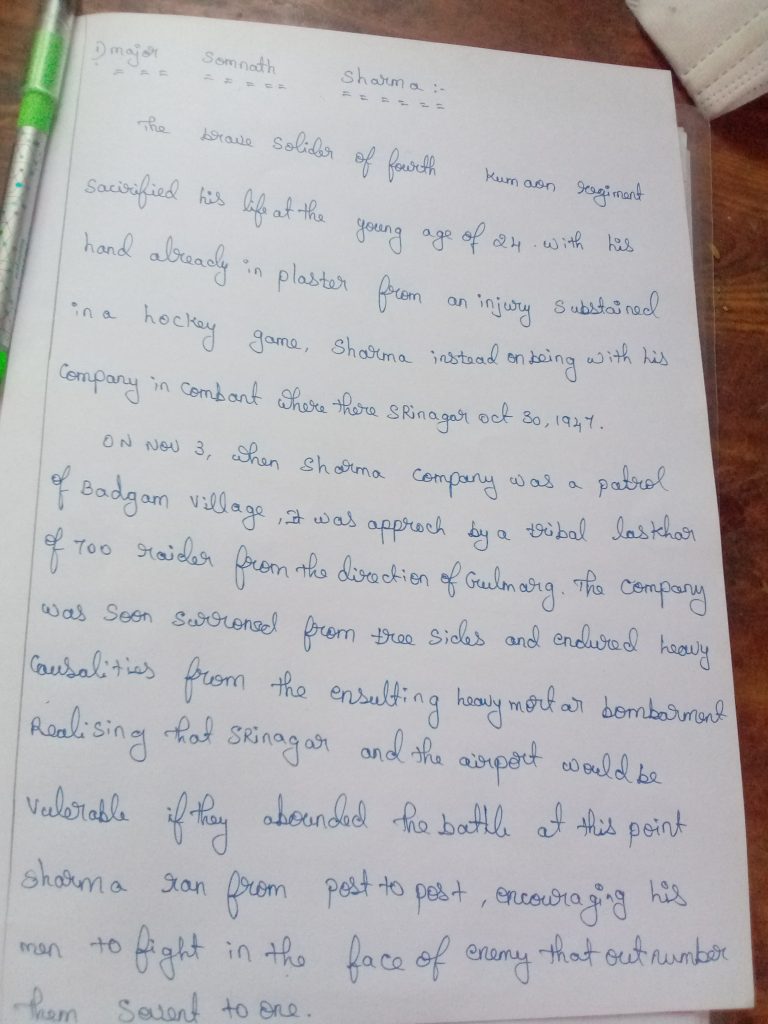 1) major Somnath Sharma :-
The brave Solider of fourth Kumaon regiment
Sacirified his life at the young age of 24. with his
hand already in plaster from an injury Substained
in a hockey game, Sharma instead on being with his
Company in Combant where there SRinagar oct 30, 1947.
ON Nov 3, when Sharma company was a patrol
of Badgam village, It was approch by a tribal laskhar
of 700 raider from the direction of Gulmarg. The company
was Soon Surronsed from tree Sides and endured heavy
Causalities from the ensulting heavy mortar bombarment
Realising that SRinagar and the airport would be
Vulerable if they abounded the battle at this point
Sharma ran from post to post, encouraging his
men to fight in the face of enemy that out number
them Sevent to one.